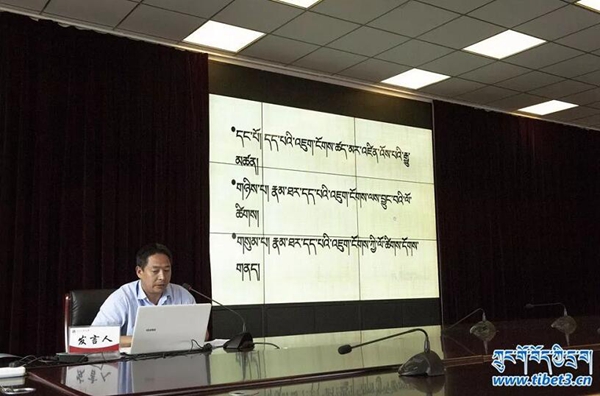 •དང་པོ། དད་པའི་འཇུག་ངོགས་ཚད་མར་འཛིན་འོས་པའི་རྒྱུ་
མཚན།
•གཉིས་པ། རྣམ་ཐར་དད་པའི་འཇུག་ངོགས་ལས་བྱུང་བའི་ལོ་
ཚིགས།
•གསུམ་པ། རྣམ་ཐར་དད་པའི་འཇུག་ངོགས་ཀྱི་ལོ་ཚིགས་དོགས་
གནད།
发言人
ཀྲུང་གོ་བོད་ཀྱི་དྲ་བ།
www.tibet3.cn